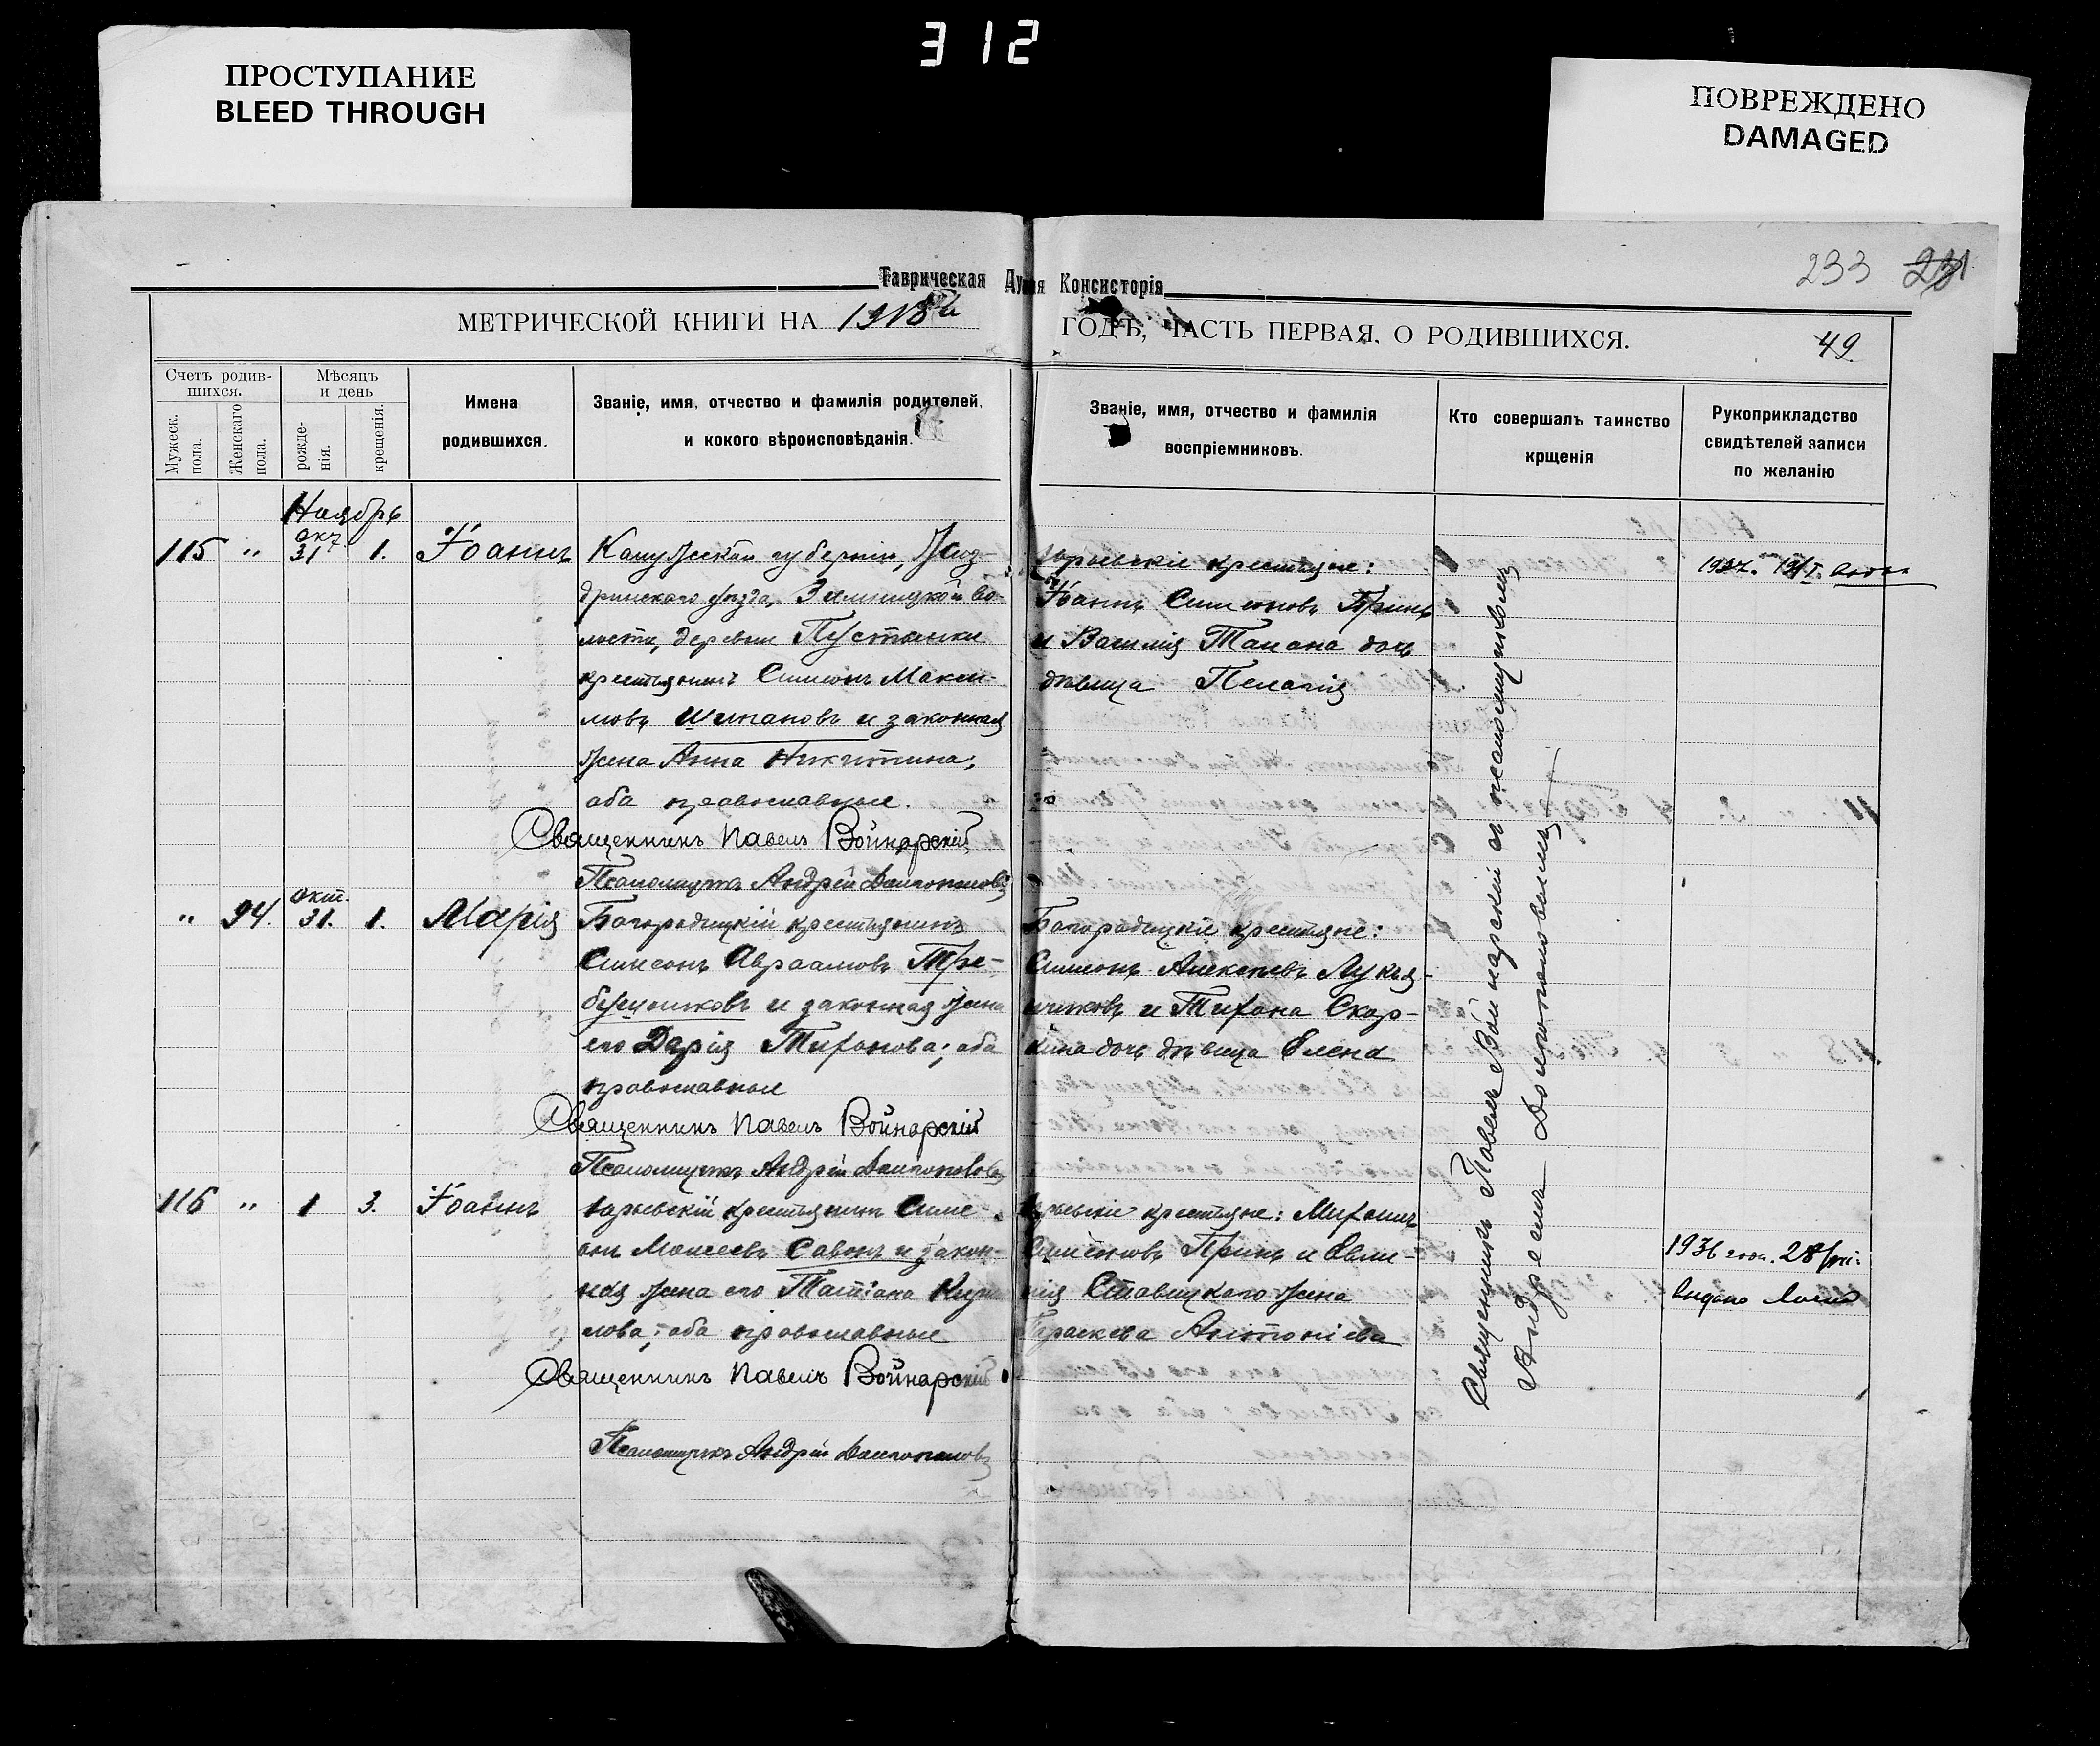 312
ПРОСТУПАНИЕ
BLEED THROUGH
ПОВРЕЖДЕНО
DAMAGED
233 231
Таврическая Дух Консисторія
МЕТРИЧЕСКОЙ КНИГИ НА 1918
ГОДЪ, ЧАСТЬ ПЕРВАЯ, О РОДИВШИХСЯ.
49.
Счетъ родив-
шихся.
Мужеск.
пола.
Женскаго
пола.
Мѣсяцъ
и день
рожде-
нія.
крещенія.
Имена
родившихся.
Званіе, имя, отчество и фамилія родителей,
и кокого вѣроисповѣданія.
Званіе, имя, отчество и фамилія
воспріемниковъ.
Кто совершалъ таинство
крщенія
Рукоприкладство
свидѣтелей записи
по желанію
Ноябрь
115 " окт. 31 1. Іоаннъ
Калужской губерніи, Жиз-
дринскаго уѣзда, во-
лости, деревни Пустынки
крестьянинъ Симеонъ Макси-
мовъ Шипановъ и законная
жена Анна Никитина,
оба православные.
Священникъ Павелъ Войнарскій
Псаломщикъ Андрей
Юрьевскіе крестьяне:
Іоаннъ Симеоновъ Принь
и Василія дочь
дѣвица Пелагія
1937.
" 94. окт. 31. 1. Марія
Богородицкій крестьянинъ
Симеонъ Авраамовъ Тре-
бушниковъ и законная жена
его Дарія Тихонова; оба
православные
Священникъ Павелъ Войнарскій
Псаломщикъ Андрей
Богородицкіе крестьяне:
Симеонъ Алексѣевъ Лукья-
нчиковъ и Тихона Скор-
кина дочь дѣвица Елена
116 " 1 3. Іоаннъ
Юрьевскій крестьянинъ Симе-
онъ Моисеевъ Савонъ и закон-
ная жена его Татіана Кирил
лова; оба православные
Священникъ Павелъ Войнарскій
Псаломщикъ Андрей
Юрьевскіе крестьяне: Михаилъ
Симеоновъ Принь и Евли-
нія Ставицкаго жена
Параскева Антоніева
1936 года. 28/VII.
выдано
Священникъ Павелъ Войнарскій съ псаломщикомъ
Андреемъ